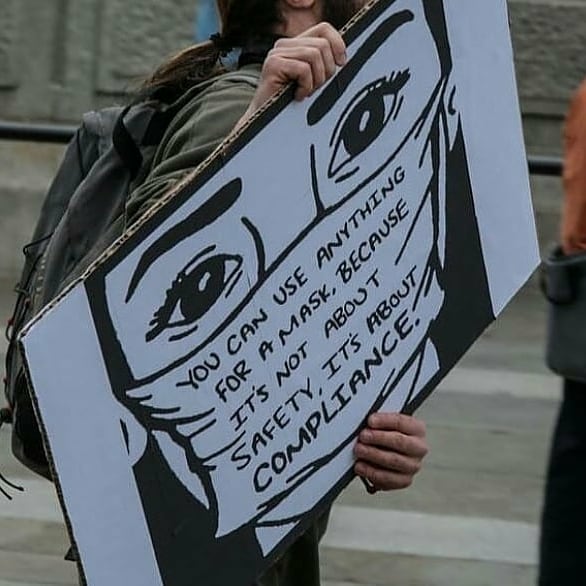 YOU CAN USE ANYTHING
FOR A MASK, BECAUSE
IT'S NOT ABOUT
SAFETY, IT'S ABOUT
COMPLIANCE.